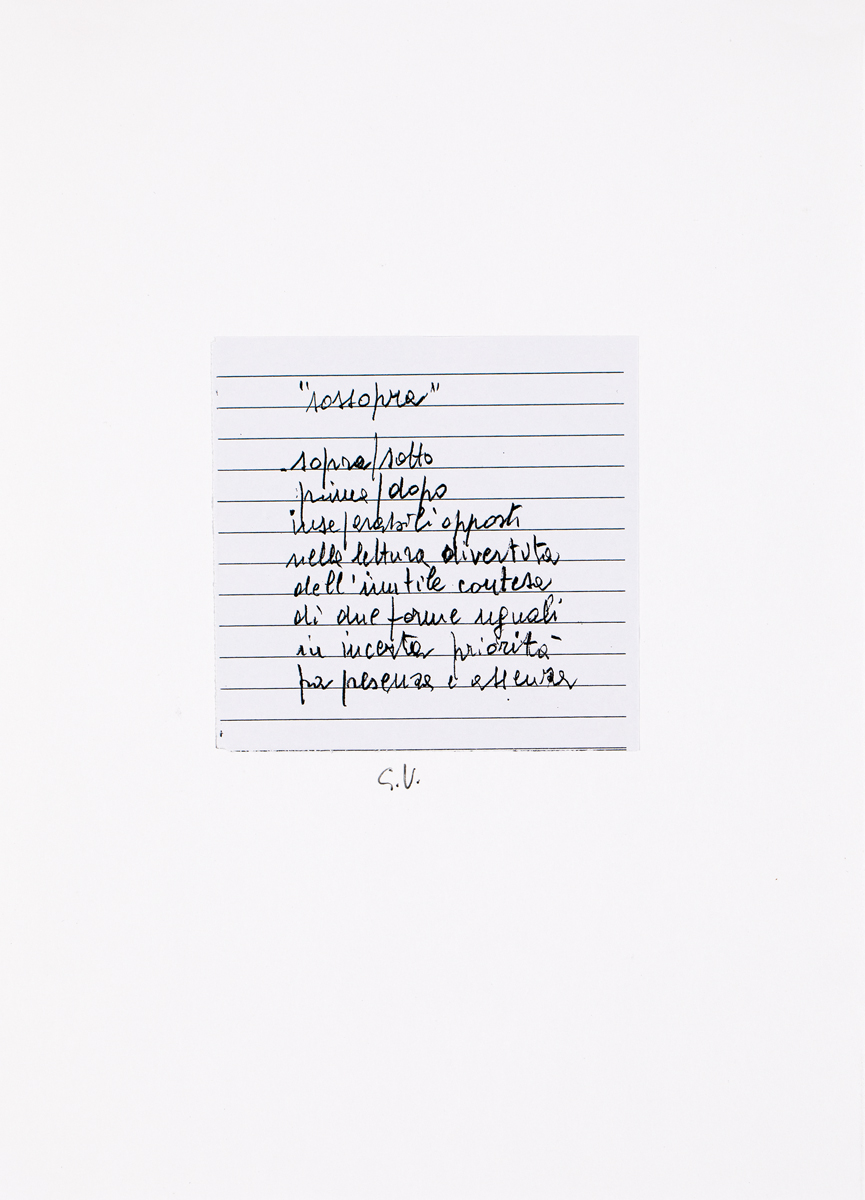 "sossopra"
sopra/sotto
prima/dopo
inseparabili opposti
nella lettura divertita
dell'inutile contesa
di due forme uguali
in incerta priorità
fra presenza e assenza
G.V.